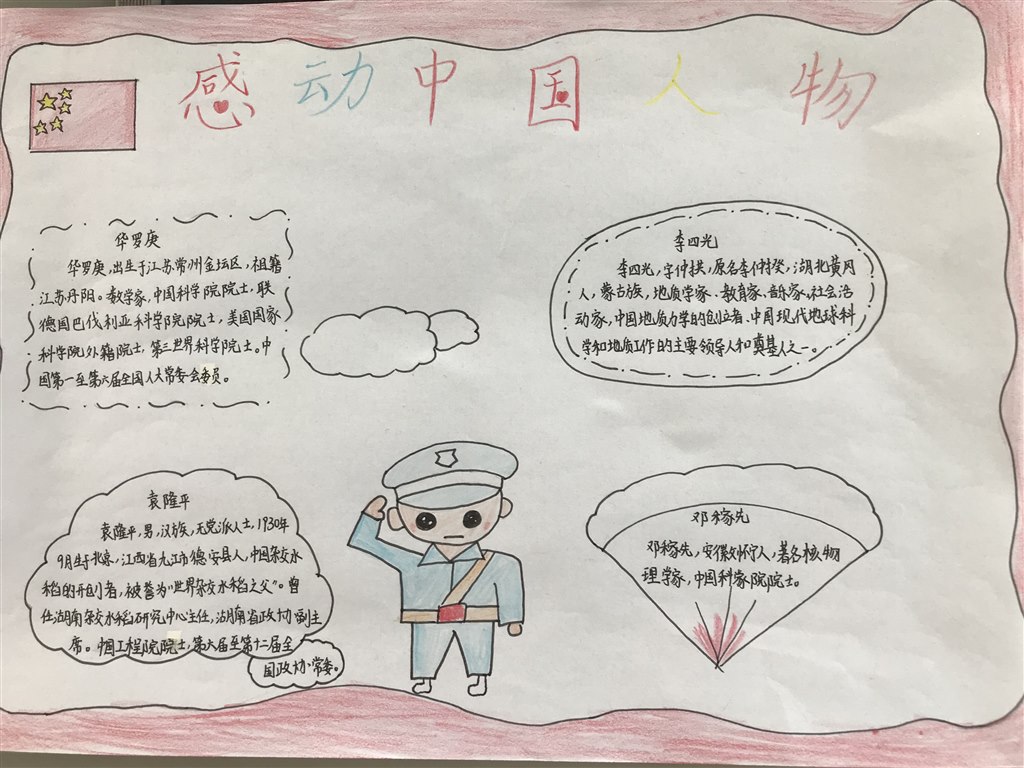 感动中国人物
华罗庚
华罗庚,出生于江苏常州金坛区,祖籍
江苏丹阳。数学家,中国科学院院士,联
德国巴伐利亚科学院院士,美国国家
科学院外籍院士,第三世界科学院士。中
国第一至第六届全国人大常委会委员。
李四光
李四光,字仲拱,原名李仲揆,湖北黄冈
人,蒙古族,地质学家、教育家、音乐家、社会活
动家,中国地质力学的创立者、中国现代地球科
学和地质工作的主要领导人和奠基人之一。
袁隆平
袁隆平,男,汉族,无党派人士,1930年
9月生于北京,江西省九江市德安县人,中国杂交水
稻的开创者,被誉为"世界杂交水稻之父"。曾
任湖南杂交水稻研究中心主任,湖南省政协副主
席。中国工程院院士,第六届至第十二届全
国政协常委。
邓稼先
邓稼先,安徽怀宁人,著名核物
理学家,中国科学院院士。